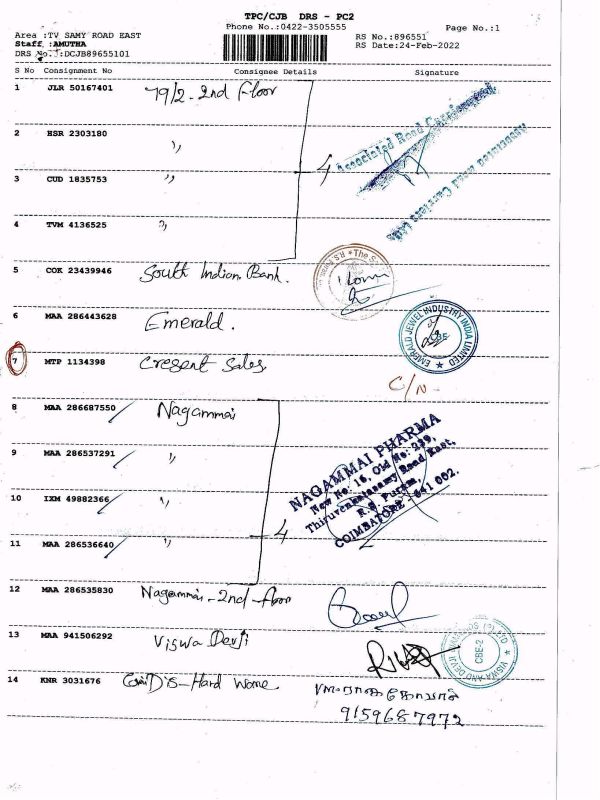 TPC/CJB DRS - PC2
Phone No.:0422-3505555
Page No.:1
Area :TV SAMY ROAD EAST
RS No.:896551
Staff :AMUTHA
RS Date:24-Feb-2022
DRS No.:DCJB89655101
S No Consignment No Consignee Details Signature
1 JLR 50167401 79/2 - 2nd Floor
2 HSR 2303180 ,,
3 CUD 1835753 ,,
4
Associated Road Carriers Ltd
4 TVM 4136525 ,,
5 COK 23439946 South Indian Bank.
6 MAA 286443628 Emerald.
EMERALD JEWEL INDUSTRY INDIA LIMITED
7 MTP 1134398 Cresent Sales
C/N
8 MAA 286687550 Nagammai
9 MAA 286537291 ,,
10 IXM 49882366 ,,
11 MAA 286536640 ,,
4
NAGAMMAI PHARMA
New No: 16, Old No: 239,
Thiruvenkatasamy Road East,
R.S. Puram,
COIMBATORE - 641 002.
12 MAA 286535830 Nagammai - 2nd - floor
13 MAA 941506292 Viswa Devji
VISWA AND DEVJI DIAMONDS (P) LTD
CBE-2
14 KNR 3031676 Hard Wome
9159687972